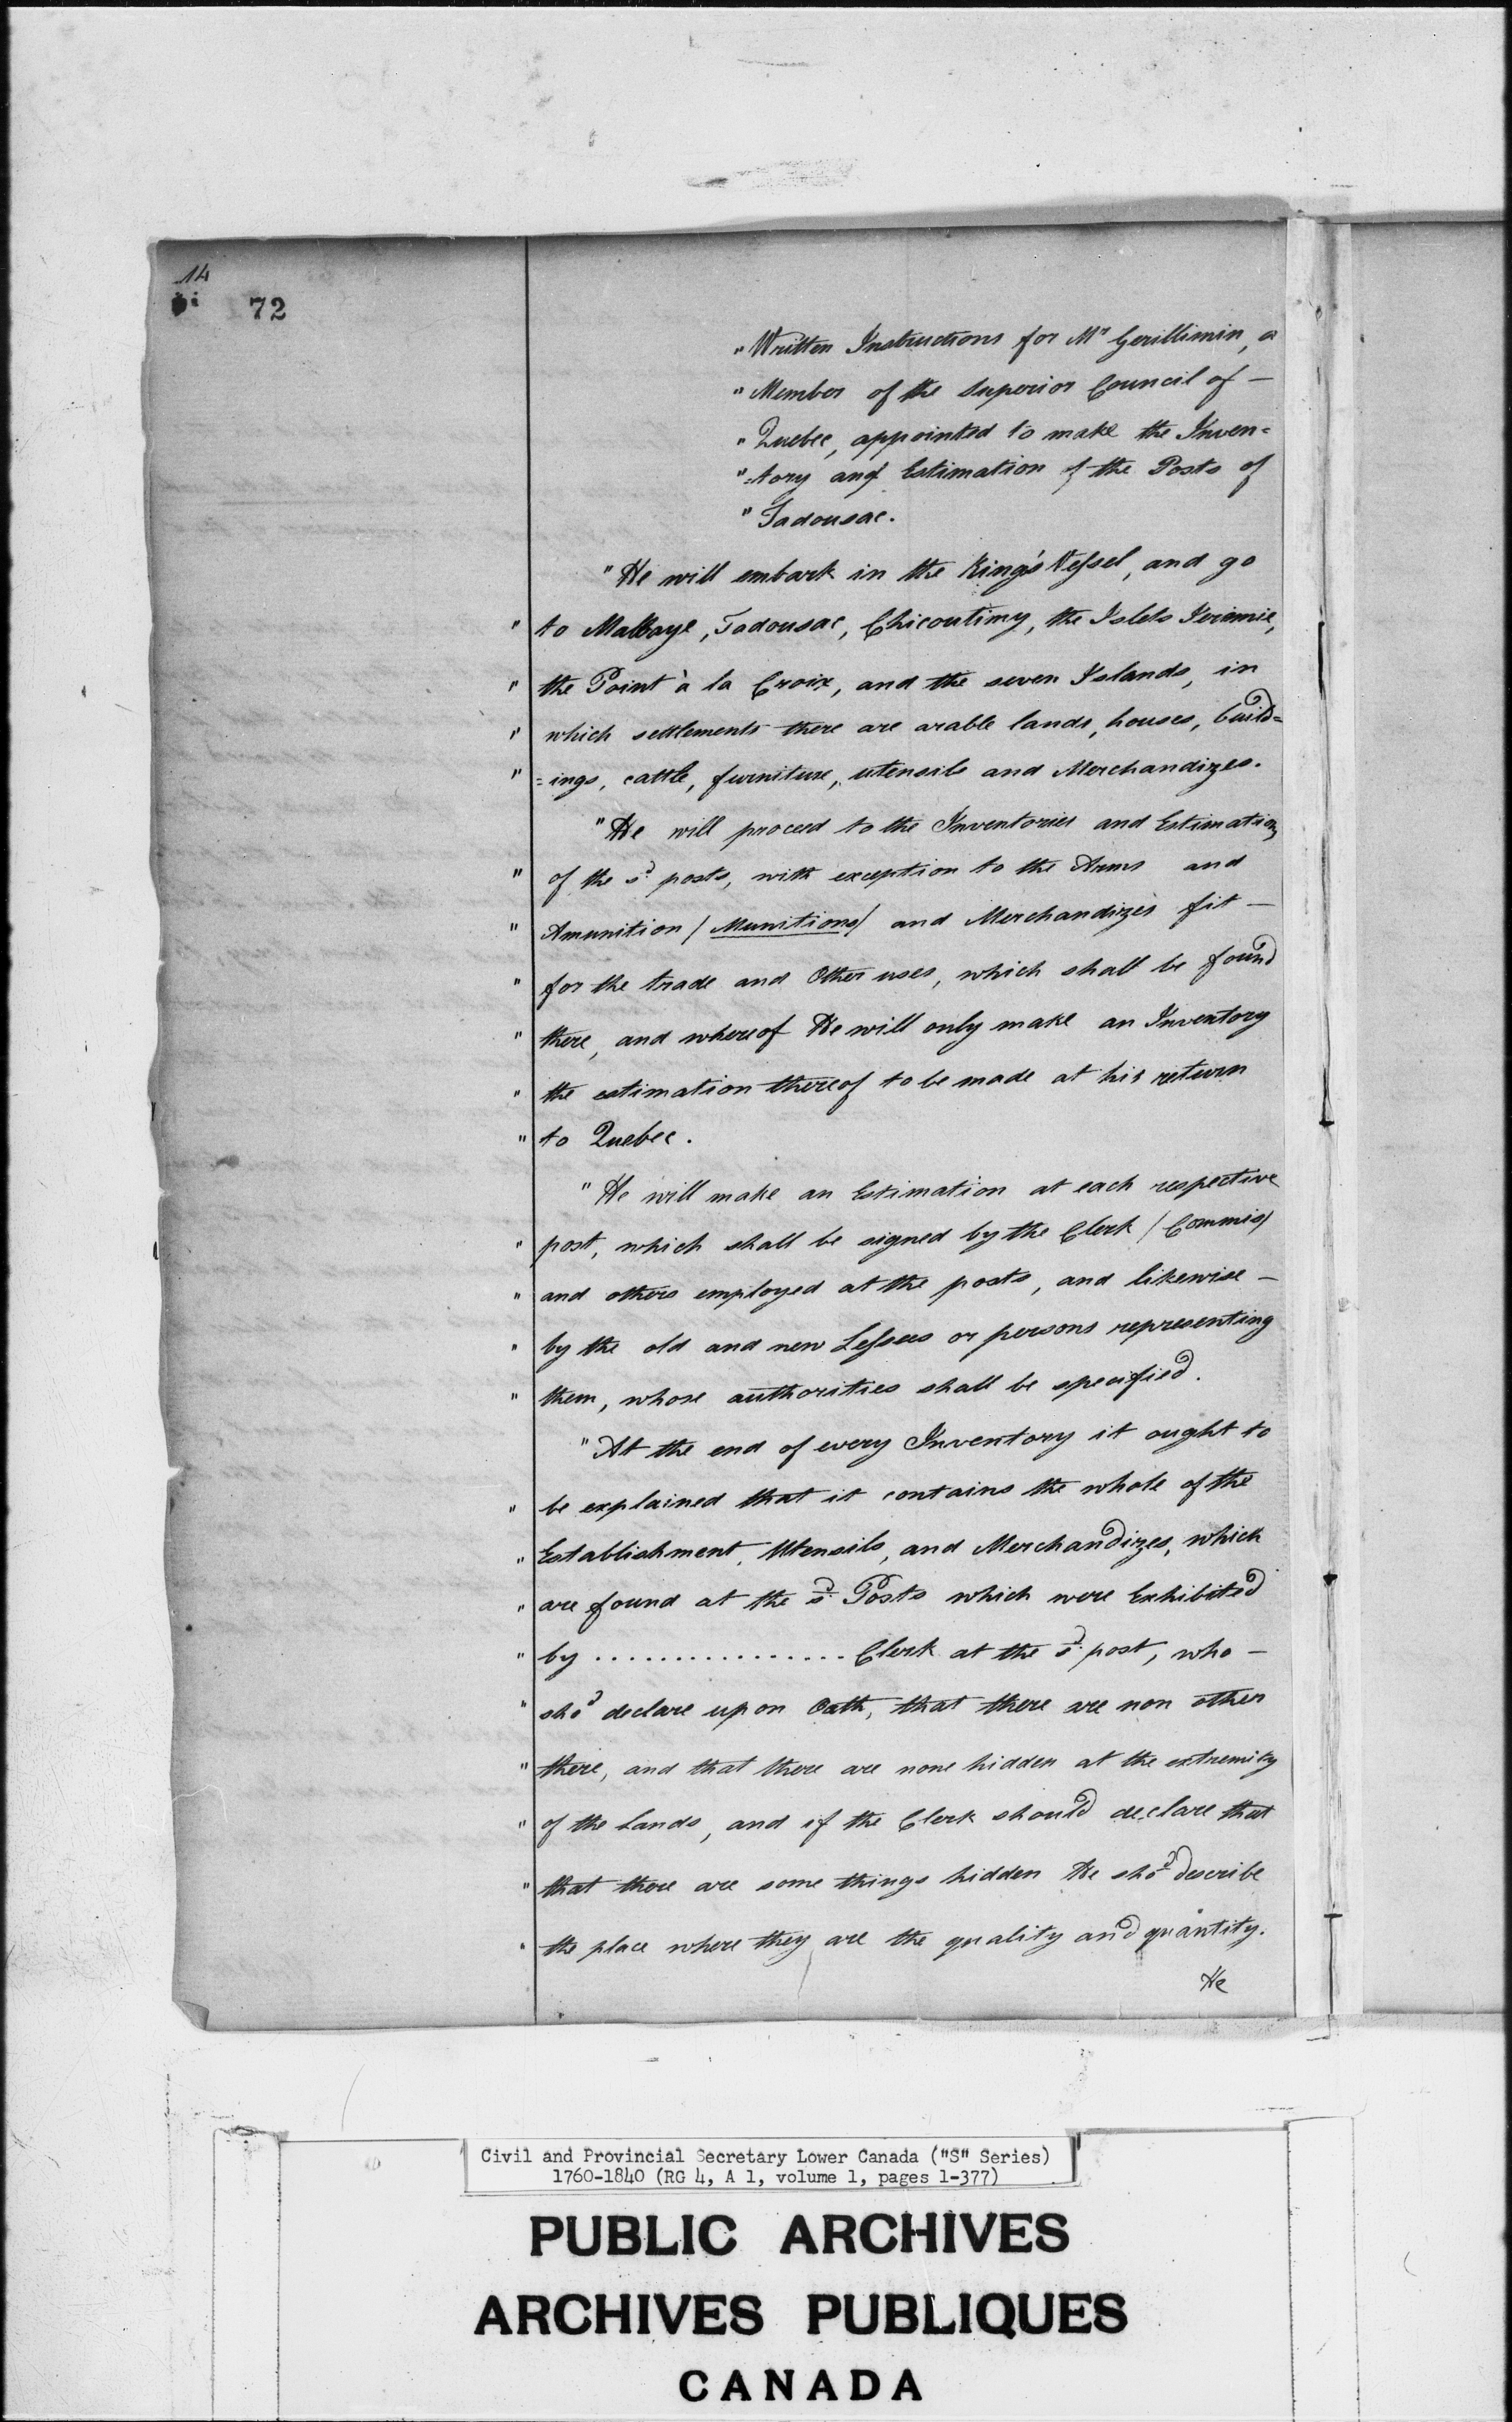 14
72
"Written Instructions for Mr Gerillimin, a
"Member of the Superior Council of —
"Quebec, appointed to make the Inven=
"=tory and Estimation of the Posts of
"Tadousac.
"He will embark in the King's Vessel, and go
" to Malbaye, Tadousac, Chicoutimy, the Islets Jeremie,
" the Point à la Croix, and the seven Islands, in
" which settlements there are arable lands, houses, build=
" =ings, cattle, furniture, utensils and Merchandizes.
"He will proceed to the Inventories and Estimations
" of the sd. posts, with exception to the Arms and
" Amunition / Munitions / and Merchandizes fit —
" for the trade and Other uses, which shall be found
" there, and whereof He will only make an Inventory
" the estimation thereof to be made at his return
" to Quebec.
"He will make an Estimation at each respective
" post, which shall be signed by the Clerk / Commis /
" and others employed at the posts, and likewise —
" by the old and new Lessees or persons representing
" them, whose authorities shall be specified.
"At the end of every Inventory it ought to
" be explained that it contains the whole of the
" Establishment, Utensils, and Merchandizes, which
" are found at the sd. Posts which were Exhibited
" by ................ Clerk at the sd. post, who —
" shod declare upon Oath, that there are non other
" there, and that there are none hidden at the extremity
" of the Lands, and if the Clerk should declare that
" that there are some things hidden He shod describe
" the place where they are the quality and quantity.
He
Civil and Provincial Secretary Lower Canada ("S" Series)
1760-1840 (RG 4, A 1, volume 1, pages 1-377)
PUBLIC ARCHIVES
ARCHIVES PUBLIQUES
CANADA